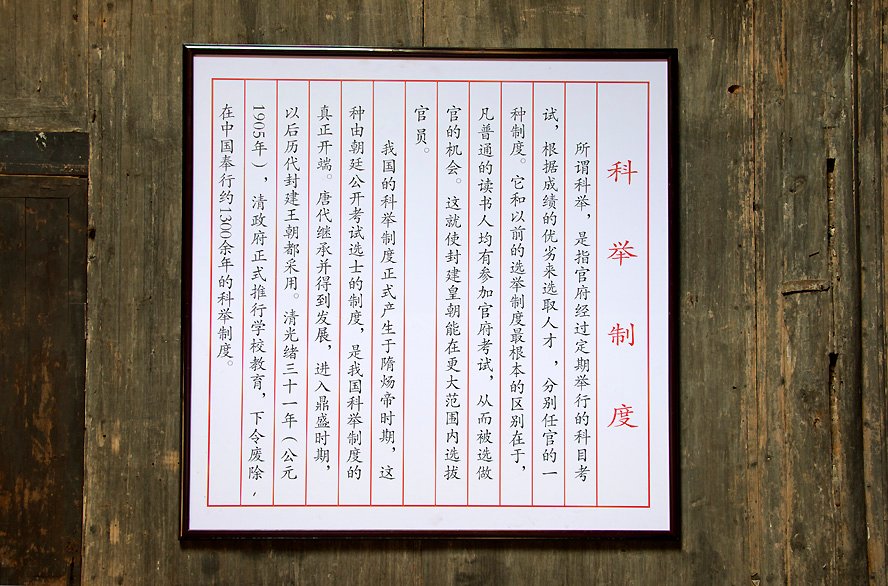 科举制度
所谓科举，是指官府经过定期举行的科目考
试，根据成绩的优劣来选取人才，分别任官的一
种制度。它和以前的选举制度最根本的区别在于，
凡普通的读书人均有参加官府考试，从而被选做
官的机会。这就使封建皇朝能在更大范围内选拔
官员。
我国的科举制度正式产生于隋炀帝时期，这
种由朝廷公开考试选士的制度，是我国科举制度的
真正开端。唐代继承并得到发展，进入鼎盛时期，
以后历代封建王朝都采用。清光绪三十一年（公元
1905年），清政府正式推行学校教育，下令废除，
在中国奉行约1300余年的科举制度。